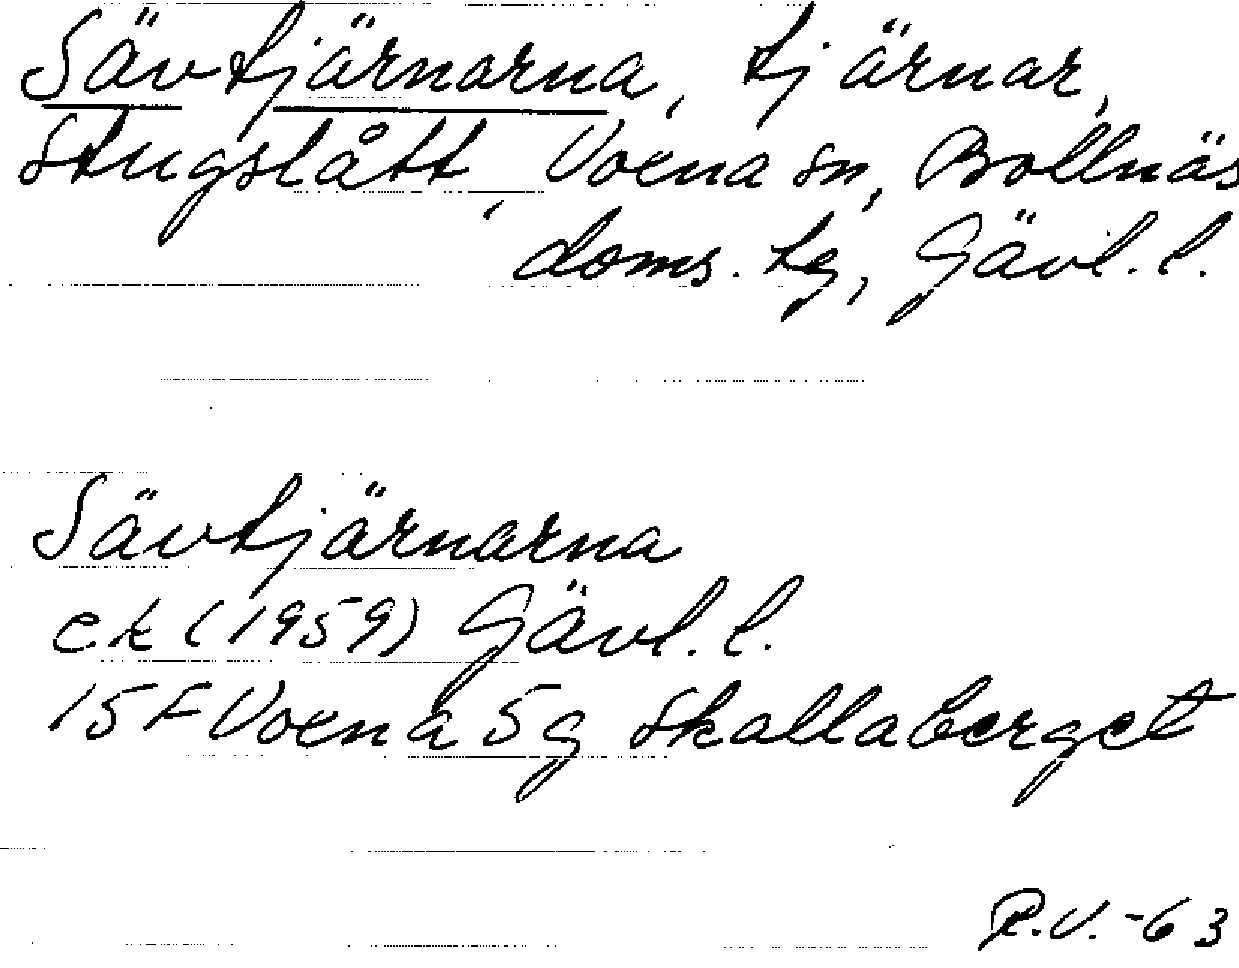 Sävtjärnarna, tjärnar,
Stugslått, Voxna sn, Bollnäs
doms. tg, Gävl. l.
Sävtjärnarna
ek (1959) Gävl. l.
15 F Voxna 5g Skallaberget
R.V. -63